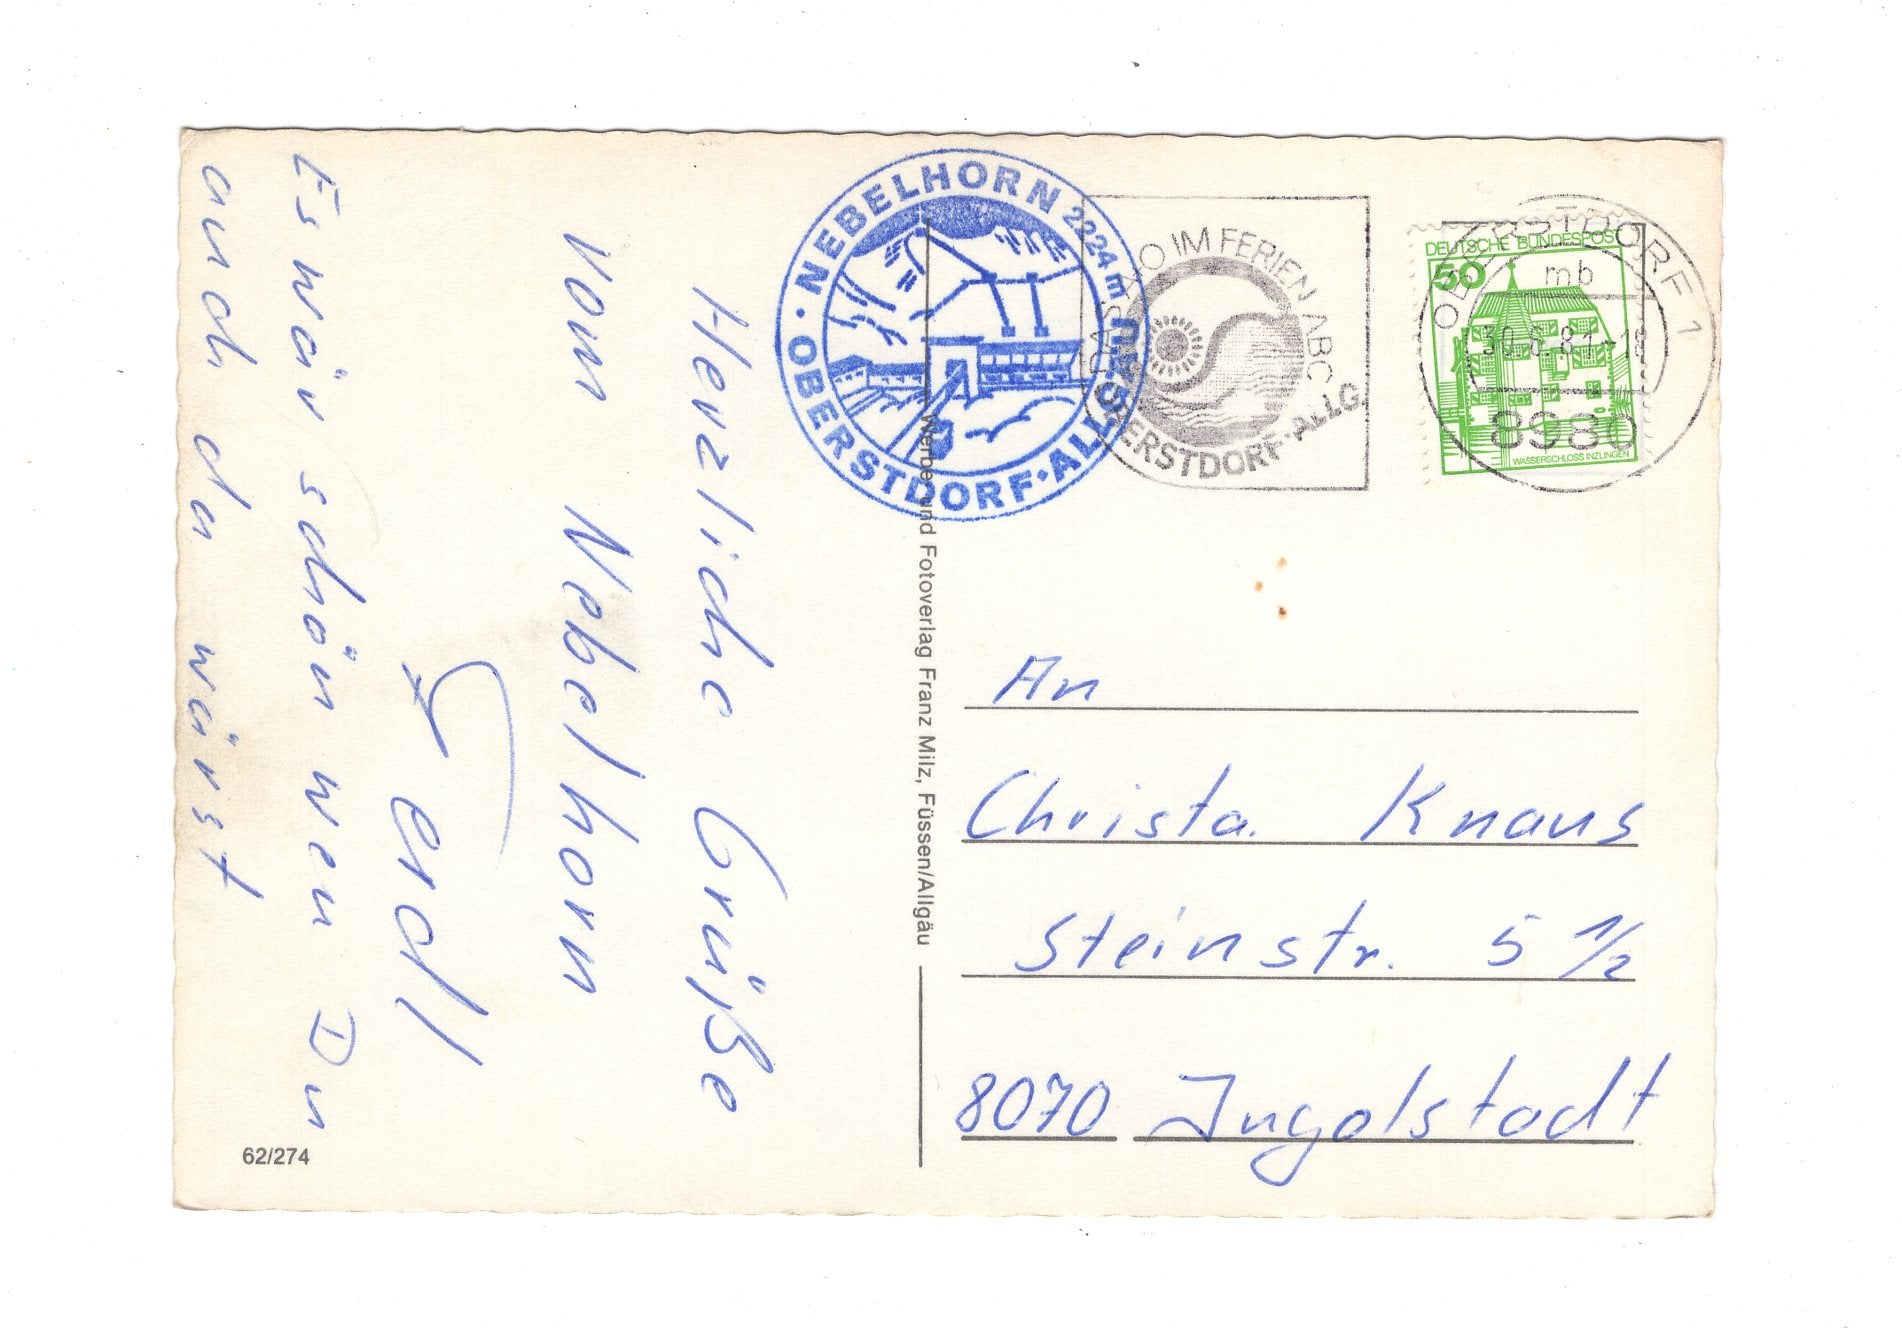 Herzliche Grüße
vom Nebelhorn
Gerdl
Es wär schön wen Du
auch da wärst
62/274
Werbe- und Fotoverlag Franz Milz, Füssen/Allgäu
· NEBELHORN 2224 m ·
OBERSTDORF · ALLGÄU
DAS XO IM FERIEN ABC
OBERSTDORF · ALLG.
DEUTSCHE BUNDESPOST
50
WASSERSCHLOSS INZLINGEN
OBERSTDORF 1
mb
8980
An
Christa Knaus
Steinstr. 5 1/2
8070 Ingolstadt